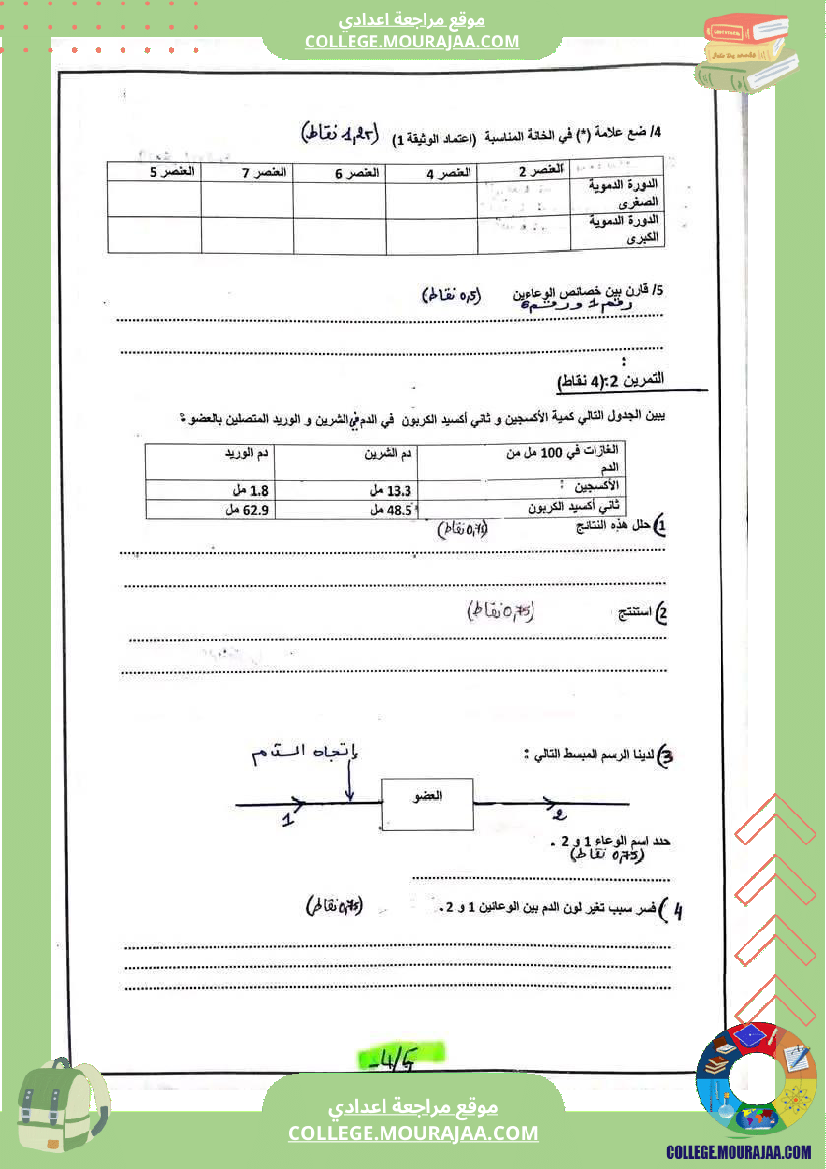 موقع مراجعة اعدادي
COLLEGE.MOURAJAA.COM
4/ ضع علامة (*) في الخانة المناسبة (اعتماد الوثيقة 1) (1,25 نقاط)
العنصر 2 العنصر 4 العنصر 6 العنصر 7 العنصر 5
الدورة الدموية الصغرى
الدورة الدموية الكبرى
5/ قارن بين خصائص الوعاءين (0,5 نقاط)
رقم 1 ورقم 6
التمرين 2:(4 نقاط)
يبين الجدول التالي كمية الأكسجين و ثاني أكسيد الكربون في الدم في الشرين و الوريد المتصلين بالعضو :
الغازات في 100 مل من الدم دم الشرين دم الوريد
الأكسجين : 13.3 مل 1.8 مل
ثاني أكسيد الكربون 48.5 مل 62.9 مل
1) حلل هذه النتائج (0,75 نقاط)
2) استنتج (0,75 نقاط)
3) لدينا الرسم المبسط التالي :
إتجاه الدم
العضو
1
2
حدد اسم الوعاء 1 و 2 .
(0,75 نقاط)
4) فسر سبب تغير لون الدم بين الوعائين 1 و 2 . (0,75 نقاط)
-4/5
موقع مراجعة اعدادي
COLLEGE.MOURAJAA.COM
COLLEGE.MOURAJAA.COM